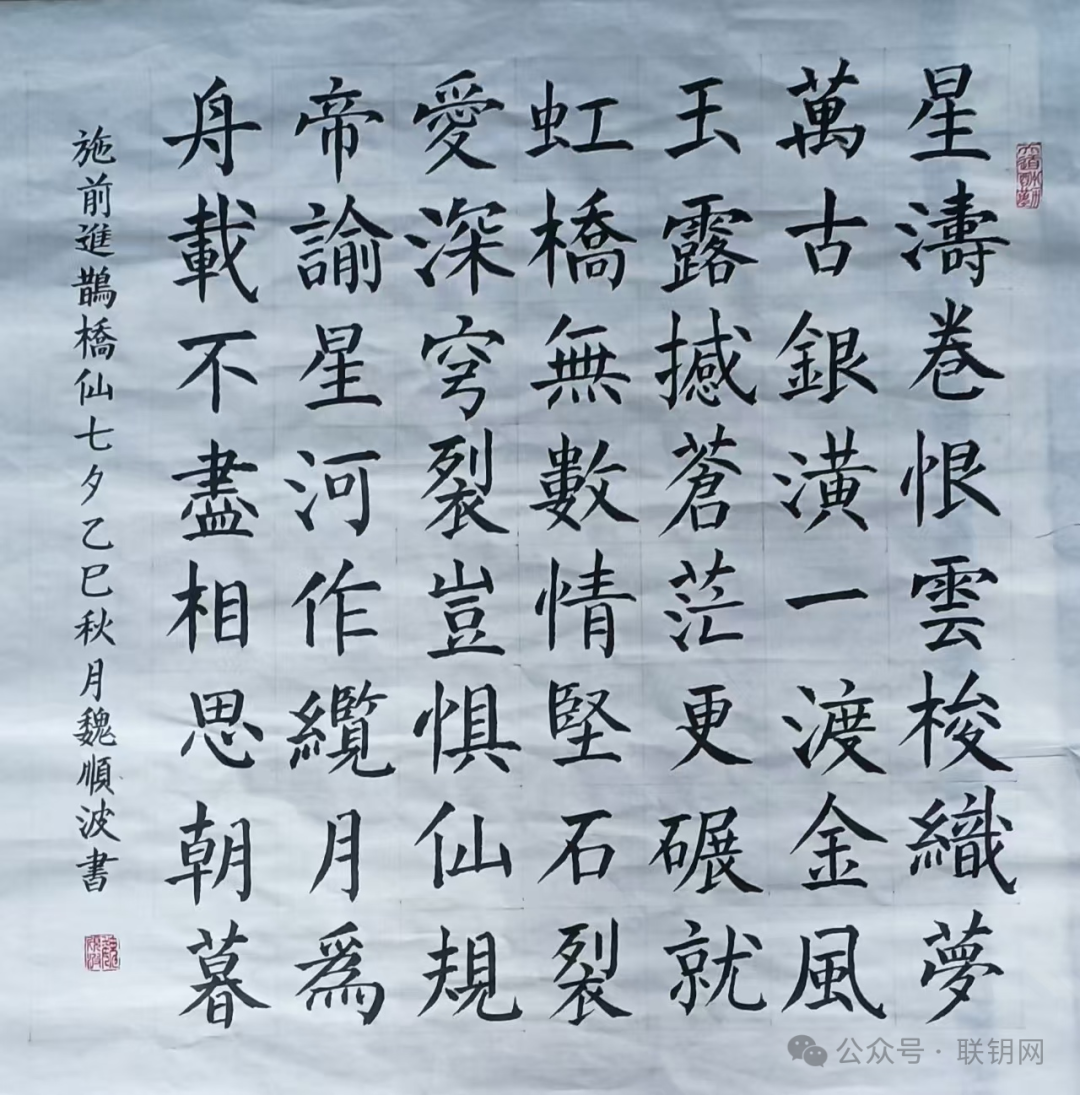 星濤卷恨雲梭織夢
萬古銀潢一渡金風
玉露撼蒼茫更碾就
虹橋無數情堅石裂
愛深穹裂豈懼仙規
帝諭星河作纜月為
舟載不盡相思朝暮
施前進鵲橋仙七夕乙巳秋月魏順波書
公众号·联钥网